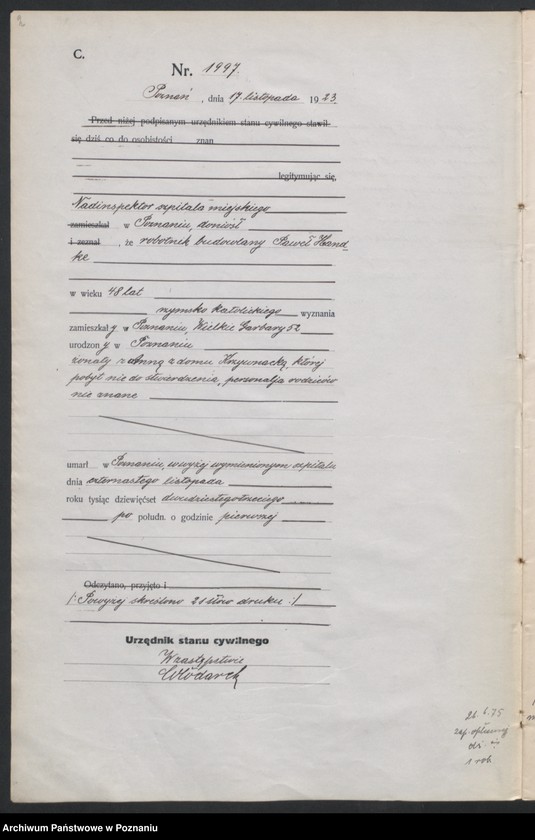 C.
Nr. 1997.
Poznań, dnia 17. listopada 1923.
Przed niżej podpisanym urzędnikiem stanu cywilnego stawił
się dziś co do osobistości znan
legitymując się,
Nadinspektor szpitala miejskiego
zamieszkał w Poznaniu, doniósł
i zeznał, że robotnik budowlany Paweł Hand
ke
w wieku 48 lat
rzymsko katolickiego wyznania
zamieszkały w Poznaniu, Wielkie Garbary 52
urodzony w Poznaniu
żonaty z Anną z domu której
pobyt nie do stwierdzenia, personalja rodziców
nie znane
umarł w Poznaniu, w wyżej wymienionym szpitalu
dnia czternastego listopada
roku tysiąc dziewięćset dwudziestegotrzeciego
po połudn. o godzinie pierwszej
Odczytano, przyjęto i
/: Powyżej skreślono 21 słów druku :/
Urzędnik stanu cywilnego
W zastępstwie
Włodarek
Archiwum Państwowe w Poznaniu